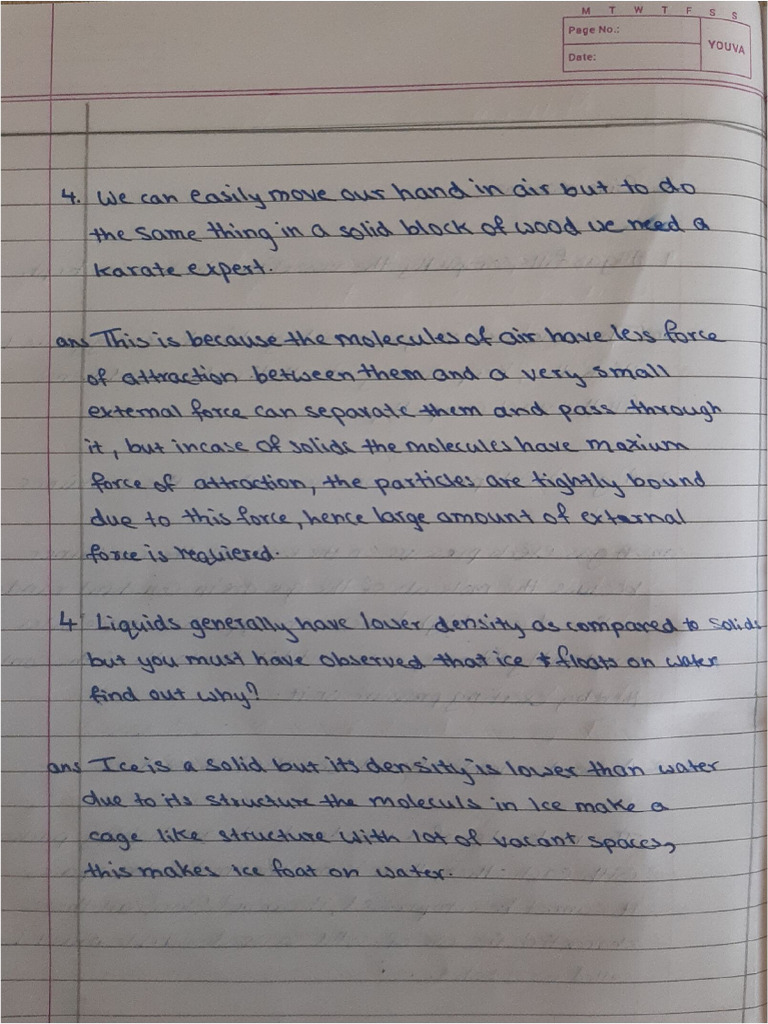 M T W T F S S
Page No.:
YOUVA
Date:
4. We can easily move our hand in air but to do
the same thing in a solid block of wood we need a
karate expert.
ans This is because the molecules of air have less force
of attraction between them and a very small
external force can separate them and pass through
it, but incase of solids the molecules have maxium
force of attraction, the particles are tightly bound
due to this force, hence large amount of external
force is requiered.
4 Liquids generally have lower density as compared to solids
but you must have observed that ice floats on water
find out why?
ans Ice is a solid but its density is lower than water
due to its structure the moleculs in Ice make a
cage like structure with lot of vacant spaces,
this makes ice foat on water.